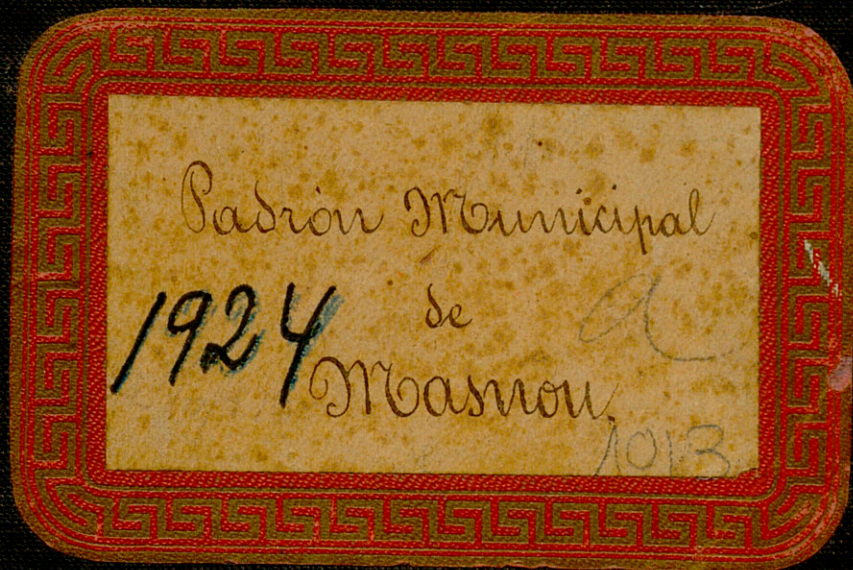 Padrón Municipal
de
1924
Masnou.
a
1013